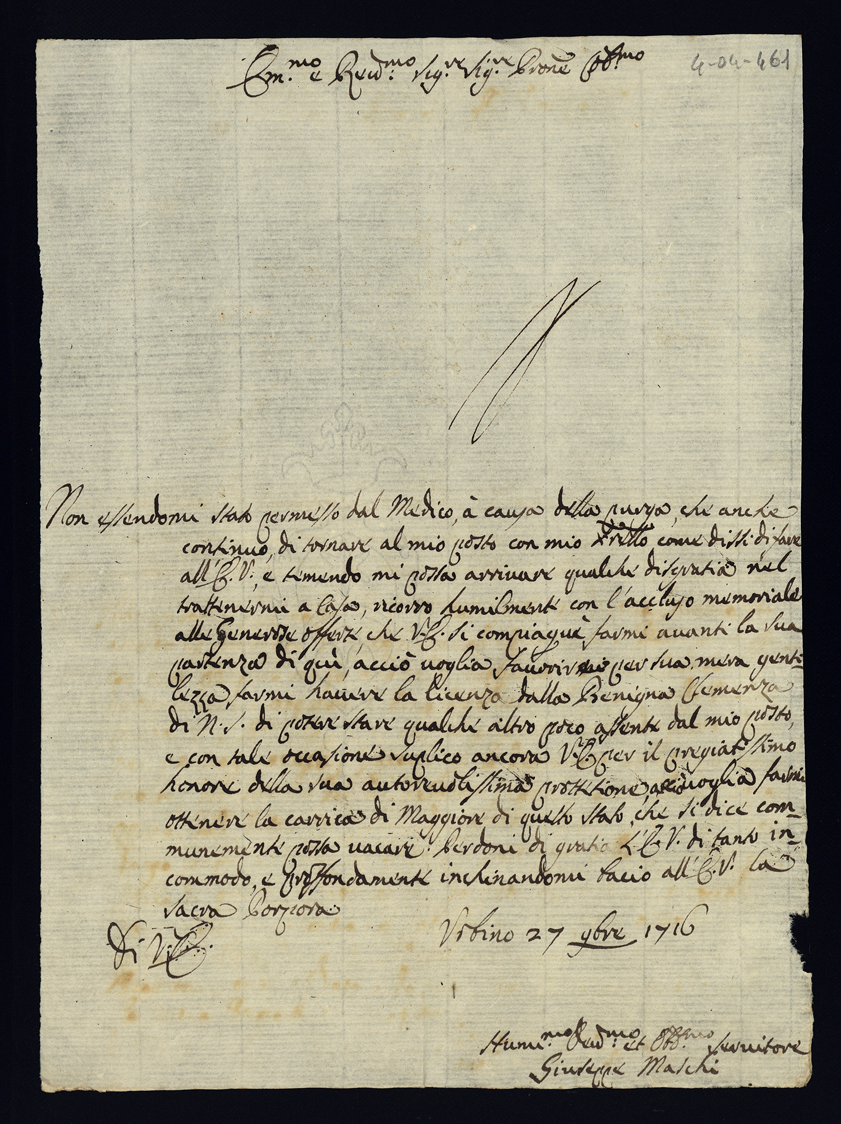 Em.mo e Reud.mo Sig.re Sig.re Prone Col.mo
4-04-461
Non essendomi stato permesso dal Medico, à causa della purga, che anche
continuo, di tornare al mio posto con mio Frello come dissi di fare
all'E.V., e temendo mi possa arrivare qualche disgratia nel
trattenermi a Casa, ricorro humilmente con l'accluso memoriale
alle generose offerte, che V.E. si compiaque farmi auanti la sua
partenza di quì, acciò uoglia fauorirmi per sua mera genti-
lezza farmi hauere la licenza dalla Benigna Clemenza
di N.S. di potere stare qualche altro poco assente dal mio posto,
e con tale occasione suplico ancora V.E. per il pregiatissimo
honore della sua autoreuolissima prottetione acciò uoglia farmi
ottenere la carrica di Maggiore di questo stato, che si dice com-
munemente possa uacare. Perdoni di gratia l'E.V. di tanto in-
commodo, e proffondamente inchinandomi bacio all'E.V. la
sacra Porpora
Di V.E. Vrbino 27 9bre 1716
Humi.mo Deud.mo et Obb.mo seruitore
Giuseppe Maschi